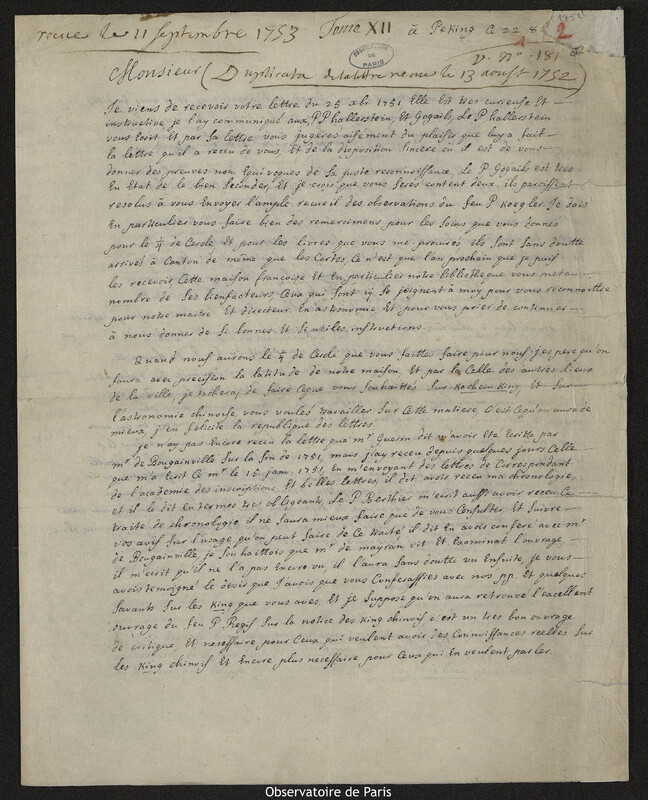 recue le 11 septembre 1753 Tome XII à Peking Ce 22 8
2
Monsieur (Duplicata de la lettre recue le 13 aoust 1752)
Je viens de recevoir votre lettre du 25 xbr 1751 Elle Est tres curieuse Et
instructive je l'ay communiqué aux PP hallerstein Et Gogails, Le P hallerstein
vous Ecrit Et par Sa lettre vous jugerés aisement du plaisir que luy a fait
la lettre qu'il a receu de vous, Et de la disposition Sincere où il Est de vous
donner des preuves non Equivoques de Sa juste reconnoissance, Le P Gogails est tres
En Etat de le bien Seconder, Et je crois que vous Serés content deux, ils paroissent
resolus à vous Envoyer l'ample recueil des observations du feu P Koegler. Je dois
En particulier vous faire bien des remercimens pour les Soins que vous donnés
pour le ¼ de Cercle Et pour les livres que vous me procurés ils Sont Sans doutte
arrivés à Canton de même que les Cartes, Ce n'est que l'an prochain que je puis
les recevoir, Cette maison francoise Et En particulier notre bibliotheque vous met au
nombre de Ses bienfacteurs, Ceux qui Sont icy Se joignent à moy pour vous reconnoittre
pour notre maitre Et directeur En astronomie Et pour vous prier de continuer
à nous donner de Si bonnes Et Si utiles instructions.
Quand nous aurons le ¼ de Cercle que vous faittes faire pour nous, j'espere qu'on
Saura avec precision la latitude de notre maison, Et par la Celle des autres lieux
de la ville, je tacheray de faire Ceque vous Souhaittés Sur Kocheou King Et Sur
l'astronomie chinoise, vous voulés travailler Sur Cette matiere, C'est Cequ'on aura de
mieux, j'en felicite la republique des lettres.
je n'ay pas Encore receu la lettre que mr Guerin dit m'avoir Eté Ecritte par
mr de Bougainville Sur la fin de 1751, mais j'ay receu depuis quelques jours Celle
que m'a Ecrit Ce mr le 15 janv. 1751, En m'envoyant des lettres de Correspondant
de l'academie des inscriptions Et belles lettres, il dit avoir receu ma chronologie,
Et il le dit En termes tres obligeans, Le P. Berthier m'ecrit aussi avoir receu Ce
traité de chronologie il ne Saura mieux faire que de vous Consulter Et Suivre
vos avis Sur l'usage qu'on peut faire de Ce traité il dit En avoir conferé avec mr
de Bougainville, je Souhaittois que mr de mayran vit Et Examinat l'ouvrage
il m'ecrit qu'il ne l'a pas Encore vu, il l'aura Sans doutte vu Ensuite, je vous
avois temoigné le desir que j'avois que vous Conferassiés avec nos pp. Et quelques
Savants Sur les King que vous avés Et je Suppose qu'on aura retrouvé l'excellent
ouvrage du feu P Regis Sur la notice des King chinois c'est un tres bon ouvrage
de critique, Et necessaire pour Ceux qui veulent avoir des Connoissances reelles Sur
les King chinois Et Encore plus necessaire pour Ceux qui En veulent parler.
Observatoire de Paris